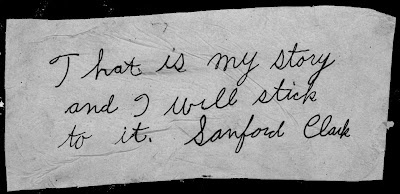 That is my story
and I will stick
to it. Sanford Clark